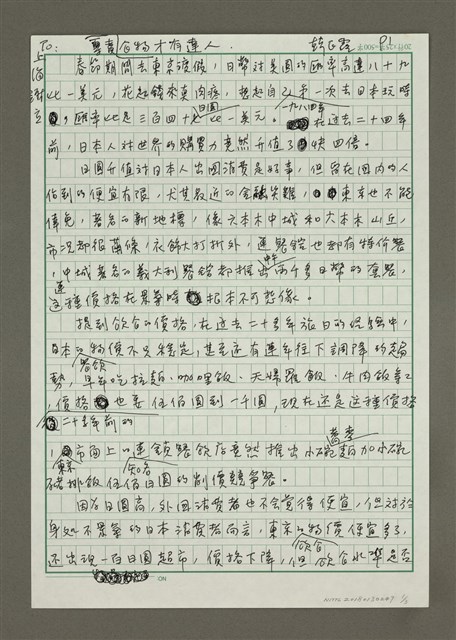 To: 尋有食物才有達人. 韓良露 P1
上個訴立
春節期間去東京渡假,日幣対美圓的匯率高達八十九
比一美元,花起錢來真肉疼,想起自己第一次去日本玩時
,匯率比是三百四十比一美元。在過去二十四年
日圓 一九八四年
前,日本人対世界的購買力竟然升值了快四倍。
日圓升值対日本人出國消費是好事,但留在國内的人
佔到的便宜有限,尤其最近的金融災難,東京也不能
倖免,著名的新地標,像六本木中城和六本木山丘,
市況都很蕭條,衣飾大打折外,連餐館也都有特價餐
,中城著名的義大利餐館都推出兩千多日幣的套餐,
中午
連這種價格在景氣時根本不可想像。
提到飲食的價格,在過去二十多年旅日的經驗中,
日本的物價不只穩定,甚至還有連年往下調降的趨
勢,早年吃拉麵、咖哩飯、天婦羅飯、牛肉飯等
餐飲
,價格也要伍佰圓到一千圓,現在還是這種價格
二十多年前的
,市面上的連鎖餐飲店竟然推出小碗麵加小碗
蕎麥
豬排飯伍佰日圓的削價競爭餐。
東京 知名
因為日圓高,外國消費者也不会覺得便宜,但対於
身処不景氣的日本消費者而言,東京的物價便宜多了,
還出現一百日圓超市,價格下降,但飲食水準是否
飲食